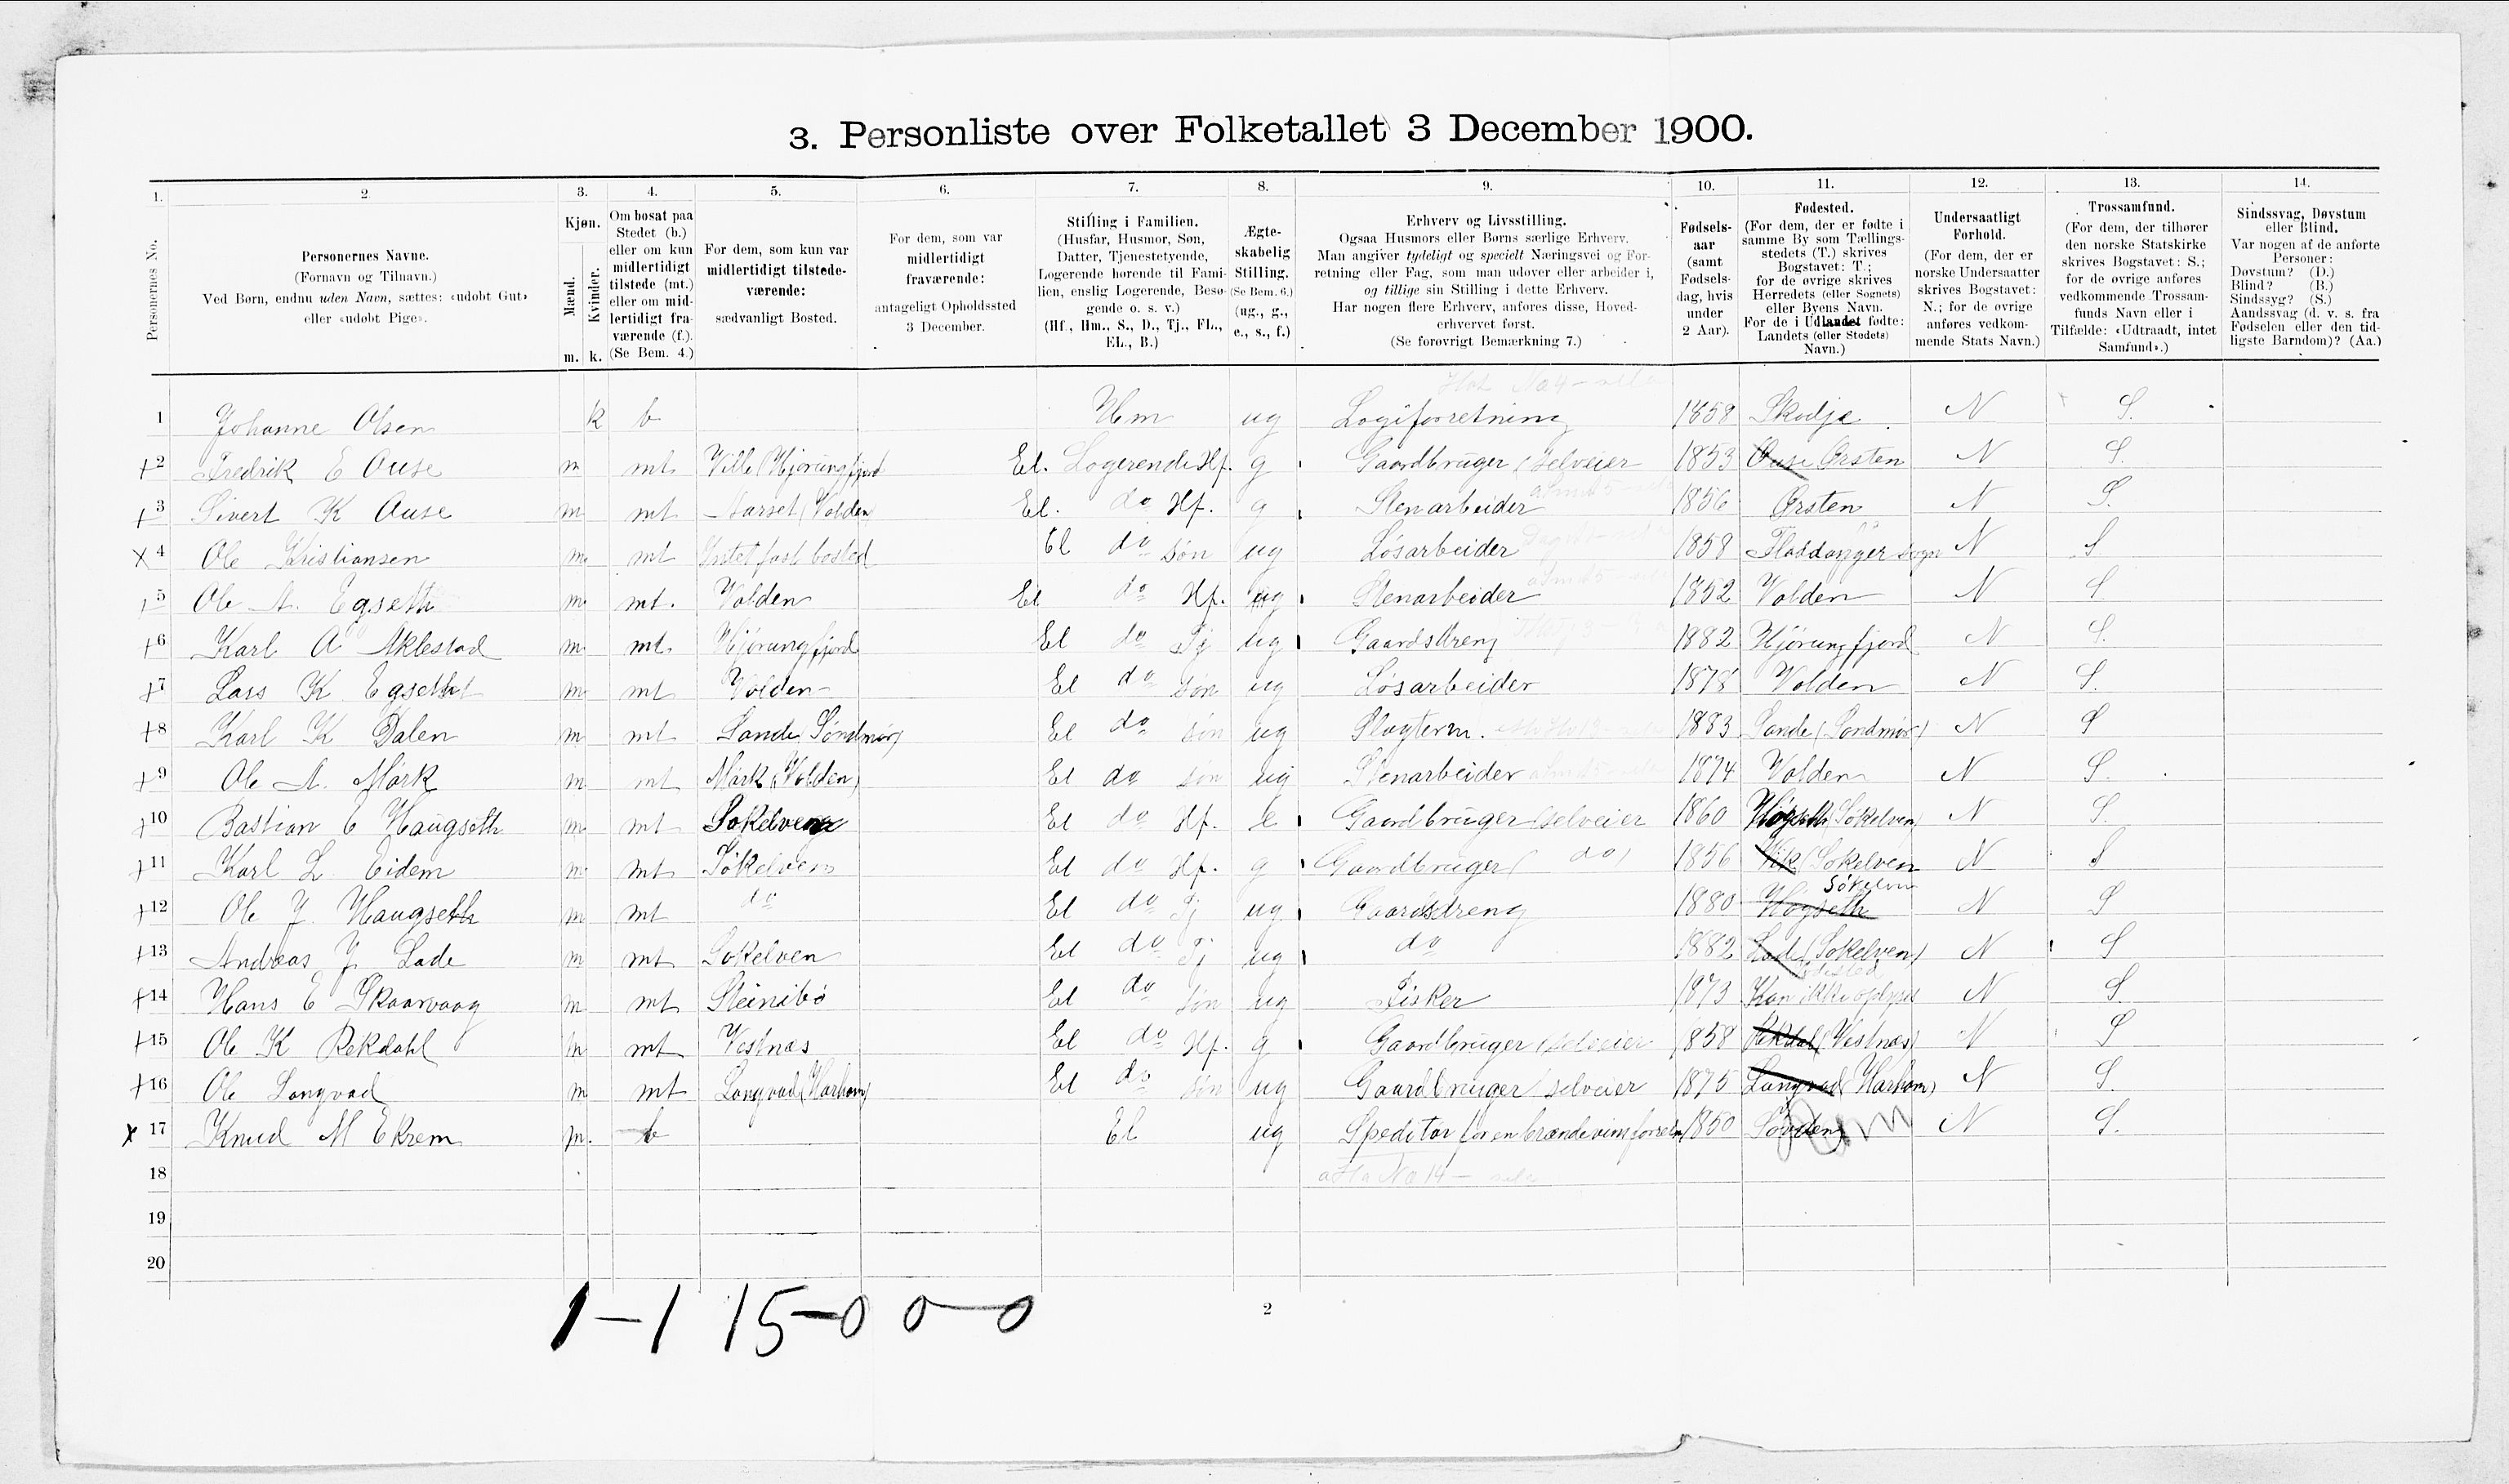 3. Personliste over Folketallet 3 December 1900.
1. 2. 3. 4. 5. 6. 7. 8. 9. 10. 11. 12. 13. 14.
Personernes No.
Personernes Navne.
(Fornavn og Tilnavn.)
Ved Børn, endnu uden Navn, sættes: «udøbt Gut»
eller «udøbt Pige».
Kjøn.
Mænd. m.
Kvinder. k.
Om bosat paa
Stedet (b.)
eller om kun
midlertidigt
tilstede (mt.)
eller om mid-
lertidigt fra-
værende (f.).
(Se Bem. 4.)
For dem, som kun var
midlertidigt tilstede-
værende:
sædvanligt Bosted.
For dem, som var
midlertidigt
fraværende:
antageligt Opholdssted
3 December.
Stilling i Familien.
(Husfar, Husmor, Søn,
Datter, Tjenestetyende,
Logerende hørende til Fami-
lien, enslig Logerende, Besø-
gende o. s. v.)
(Hf., Hm., S., D., Tj., FL.,
EL., B.)
Ægte-
skabelig
Stilling.
(Se Bem. 6.)
(ug., g.,
e., s., f.)
Erhverv og Livsstilling.
Ogsaa Husmors eller Børns særlige Erhverv.
Man angiver tydeligt og specielt Næringsvei og For-
retning eller Fag, som man udøver eller arbeider i,
og tillige sin Stilling i dette Erhverv.
Har nogen flere Erhverv, anføres disse, Hoved-
erhvervet først.
(Se forøvrigt Bemærkning 7.)
Fødsels-
aar
(samt
Fødsels-
dag, hvis
under
2 Aar).
Fødested.
(For dem, der er fødte i
samme By som Tællings-
stedets (T.) skrives
Bogstavet: T.;
for de øvrige skrives
Herredets (eller Sognets)
eller Byens Navn.
For de i Udlandet fødte:
Landets (eller Stedets)
Navn.)
Undersaatligt
Forhold.
(For dem, der er
norske Undersaatter
skrives Bogstavet:
N.; for de øvrige
anføres vedkom-
mende Stats Navn.)
Trossamfund.
(For dem, der tilhører
den norske Statskirke
skrives Bogstavet: S.;
for de øvrige anføres
vedkommende Trossam-
funds Navn eller i
Tilfælde: «Udtraadt, intet
Samfund».)
Sindssvag, Døvstum
eller Blind.
Var nogen af de anførte
Personer:
Døvstum? (D.)
Blind? (B.)
Sindssyg? (S.)
Aandssvag (d. v. s. fra
Fødselen eller den tid-
ligste Barndom)? (Aa.)
1 Johanne Olsen k b Hm ug Logiforretning 1858 Skodje N S.
+2 Fredrik E Ouse m mt Ville (Hjørungfjord El. Logerende Hf. g Gaardbruger (selveier 1853 Ouse Ørsten N S.
+3 Sivert K Ouse m mt Aarset (Volden El. do Hf. g Stenarbeider 1856 Ørsten N S.
x4 Ole Kristiansen m mt Intet fast bosted El do søn ug Løsarbeider 1858 N S
5 Ole A. Egseth m mt. Volden El do Hf. ug Stenarbeider 1852 Volden N S.
+6 Karl A Aklestad m mt. Hjørungfjord El do Tj ug Gaardsdreng 1882 Hjørungfjord N S.
+7 Lars K Egseth m mt Volden El do søn ug Løsarbeider 1878 Volden N S.
+8 Karl K Dalen m mt Sande (Søndmør) El do søn ug 1883 Sande (Søndmør) N S
+9 Ole A. Mørk m mt Mørk (Volden) El do søn ug Stenarbeider 1874 Volden N S.
+10 Bastian E Haugseth m mt Søkelven El do Hf. e Gaardbruger (selveier 1860 Høgseth (Søkelven) N S.
+11 Karl L Eidem m mt Søkelven El do Hf. g Gaardbruger ( do ) 1856 Vik (Søkelven N S
+12 Ole J. Haugseth m mt do El do Tj ug Gaardsdreng 1880 Høgseth Søkelven N S
+13 Andreas J. Lade m mt Søkelven El do Tj ug do 1882 Lade (Søkelven) N S
+14 Hans E Skaarvaag m mt Steinibø El do søn ug Fisker 1873 Kan ikke oplyses N S.
+15 Ole K Rekdahl m mt Vestnæs El do Hf. g Gaardbruger (selveier 1858 Rekdal (Vestnæs) N S
+16 Ole Longvad m mt Longvad (Harham) El do søn ug Gaardbruger (selveier 1875 Longvad (Harham) N S.
x 17 Knud M Ekrem m. b El ug Speditør for en brændevinsforretn. 1850 N S.
18
19
20
1-1 15-0 0-0
2